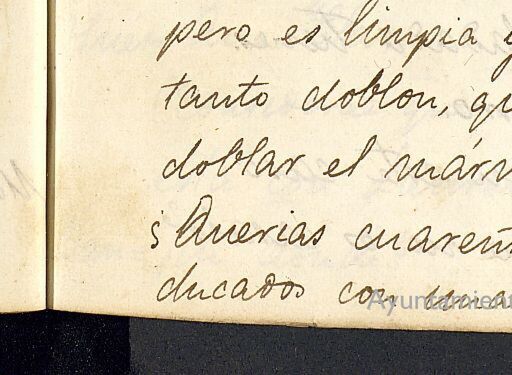 pero es limpia y
tanto doblon, qu
doblar el márm
¿Querias cuaren
ducados con una
Ayuntamient